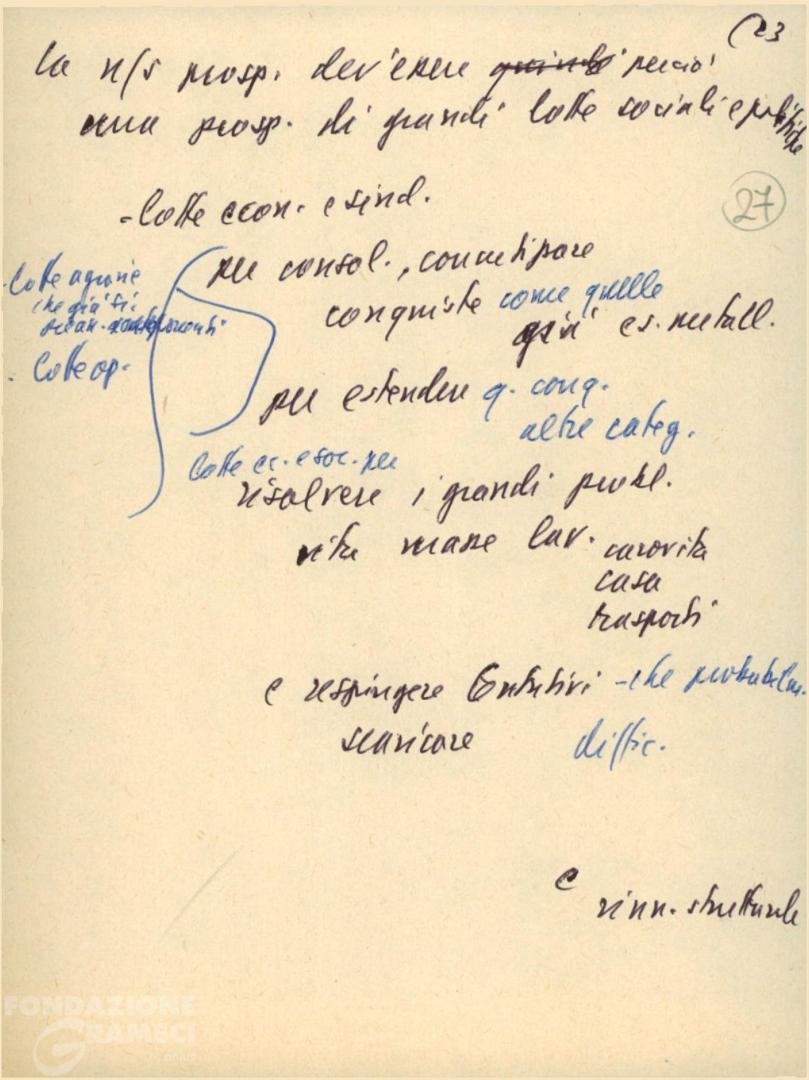 (23
la n/s prosp. dev'essere quindi perciò
una prosp. di grandi lotte sociali e politiche
27
- lotte econ. e sind.
per consol., concretizzare
conquiste come quelle
già es. metall.
- lotte agrarie
che già si
- lotte op.
per estendere q. conq.
altre categ.
lotte ec. e soc. per
risolvere i grandi probl.
vita masse lav. carovita
casa
trasporti
e respingere tentativi - che probabilm.
scaricare diffic.
e
rinn. strutturale
FONDAZIONE
GRAMSCI
onlus